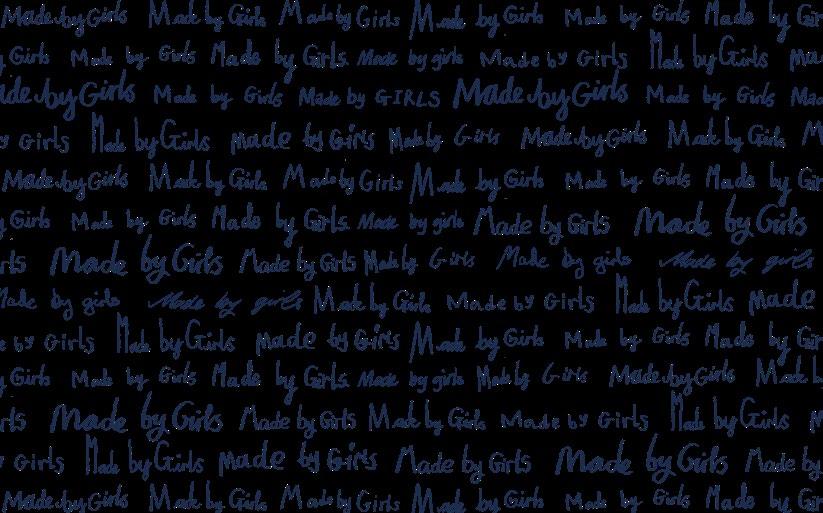 Made by Girls Made by Girls Made by Girls Made by Girls Made by Girls Made by Gir
Girls Made by Girls Made by Girls. Made by girls Made by Girls Made by Girls Ma
ade by Girls Made by Girls Made by GIRLS Made by Girls Made by Girls Mad
y Girls Made by Girls Made by Girls Made by Girls Made by Girls Made by Girls M
Made by Girls Made by Girls Made by Girls Made by Girls Made by Girls Made by Gir
Girls Made by Girls Made by Girls. Made by girls Made by Girls Made by Girls
rls Made by Girls Made by Girls Made by Girls Made by girls Made by girls
Made by girls Made by girls Made by Girls Made by Girls Made by Girls Made
e by Girls Made by Girls Made by Girls Made by Girls Made by Girls Made by Gir
Girls Made by Girls Made by Girls. Made by girls Made by Girls Made by Girls Made b
rls Made by Girls Made by Girls Made by Girls Made by Girls Made by Girls M
y Girls Made by Girls Made by Girls Made by Girls Made by Girls Made by
Made by Girls Made by Girls Made by Girls Made by Girls Made by Girls Made by Gir